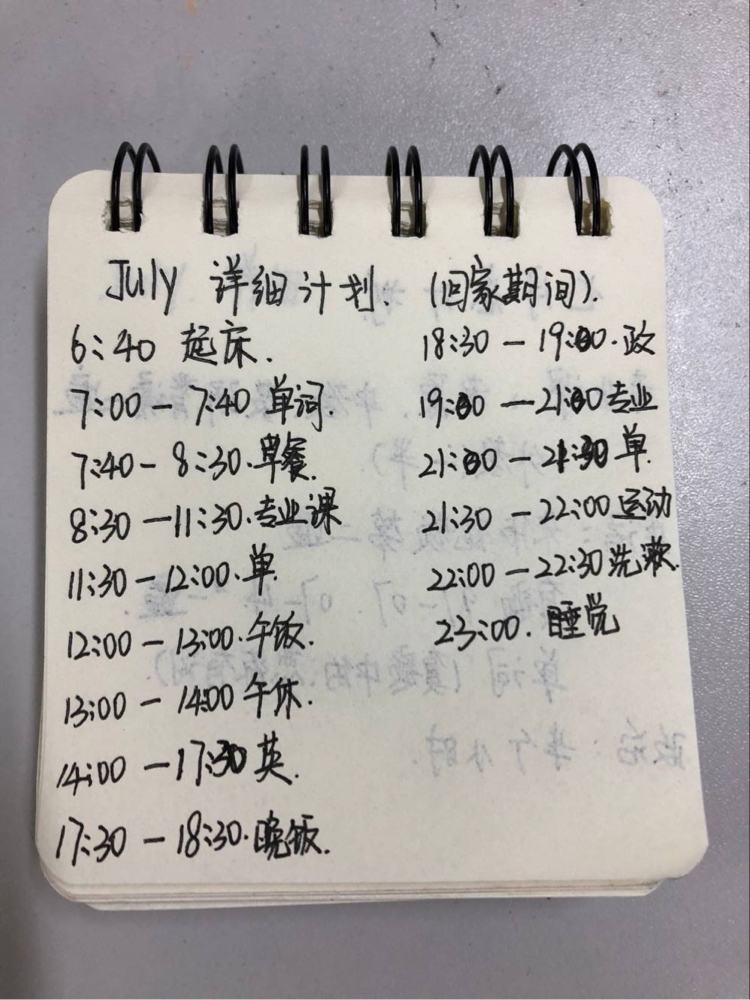 July 详细计划.（回家期间）.
6:40 起床.
7:00 — 7:40 单词.
7:40 - 8:30. 早餐.
8:30 — 11:30. 专业课
11:30 — 12:00. 单.
12:00 — 13:00. 午饭.
13:00 — 14:00 午休.
14:00 — 17:30 英.
17:30 — 18:30. 晚饭.
18:30 — 19:00. 政
19:00 — 21:00 专业
21:00 — 21:30 单.
21:30 — 22:00 运动
22:00 — 22:30 洗漱.
23:00. 睡觉